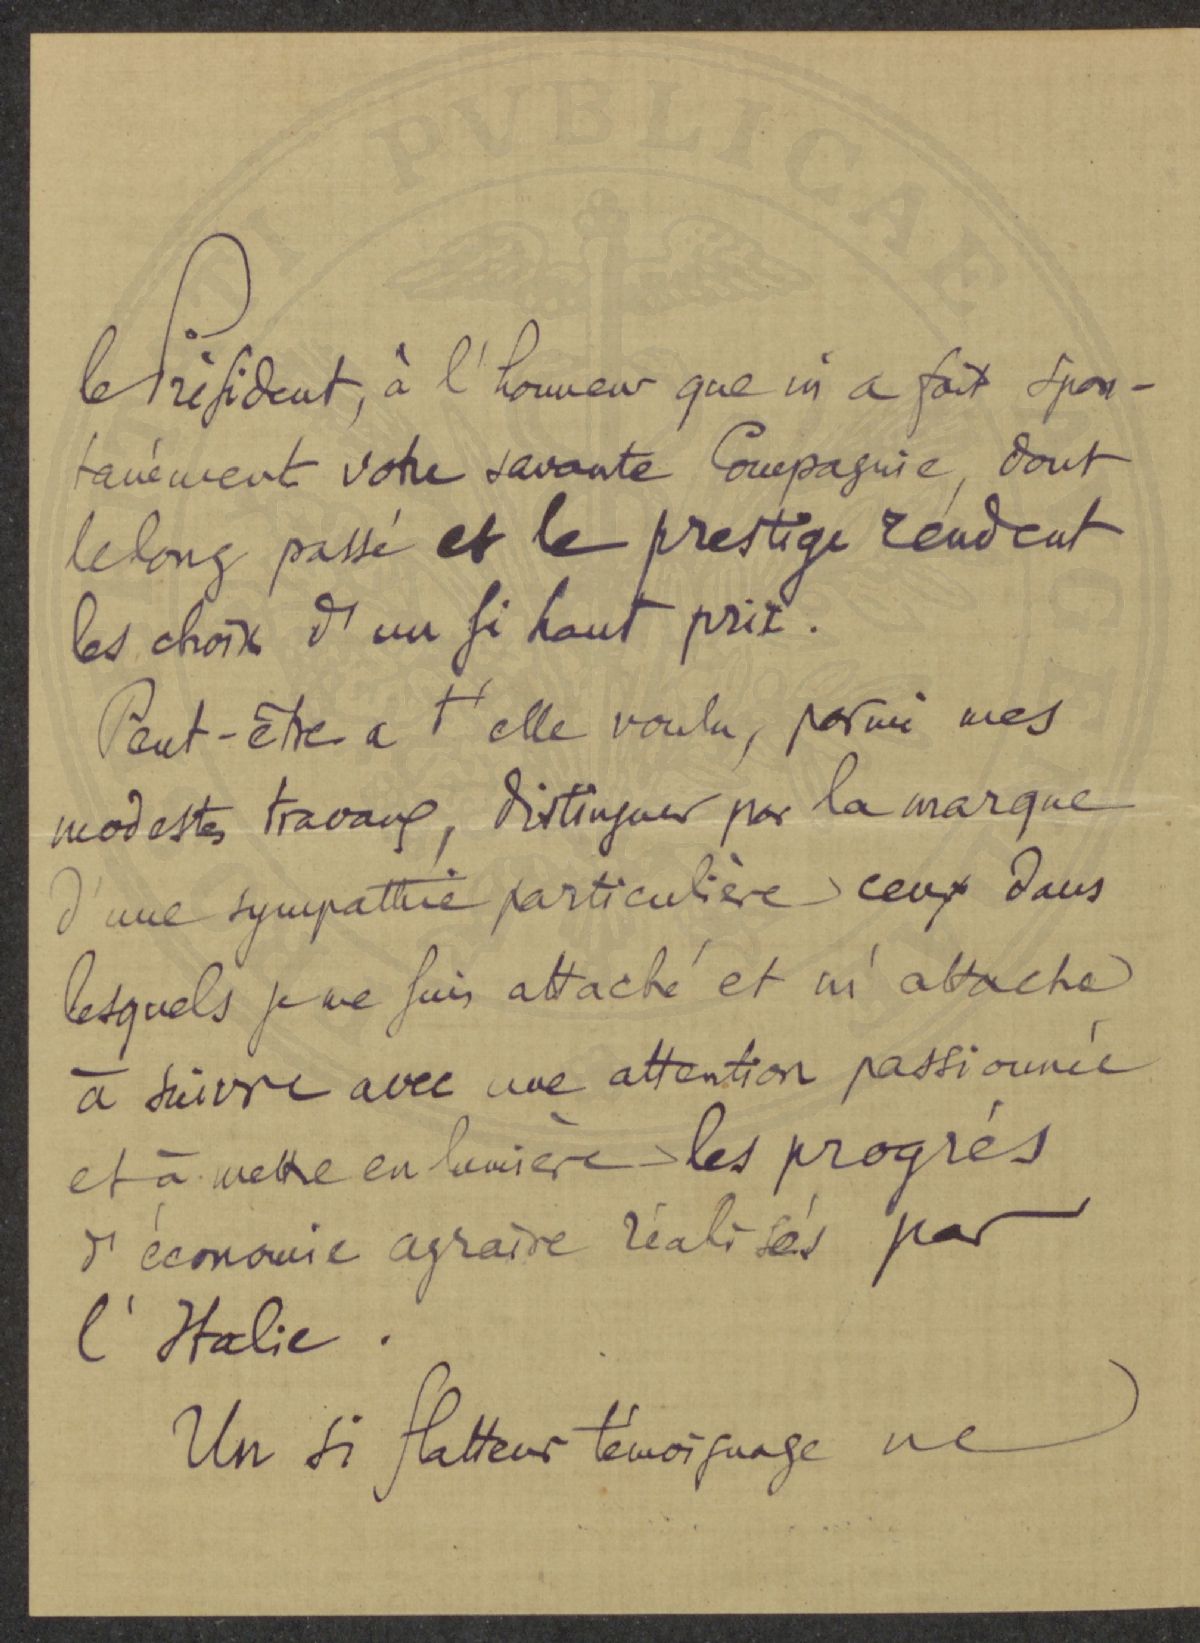 le Président, à l'honneur que m'a fait spon-
tanément votre savante Compagnie, dont
le long passé et le prestige rendent
les choix d'un si haut prix.
Peut-être a t'elle voulu, parmi mes
modestes travaux, distinguer par la marque
d'une sympathie particulière ceux dans
lesquels je me suis attaché et m'attache
à suivre avec une attention passionnée
et à mettre en lumière les progrès
d'économie agraire réalisés par
l'Italie.
Un si flatteur témoignage ne